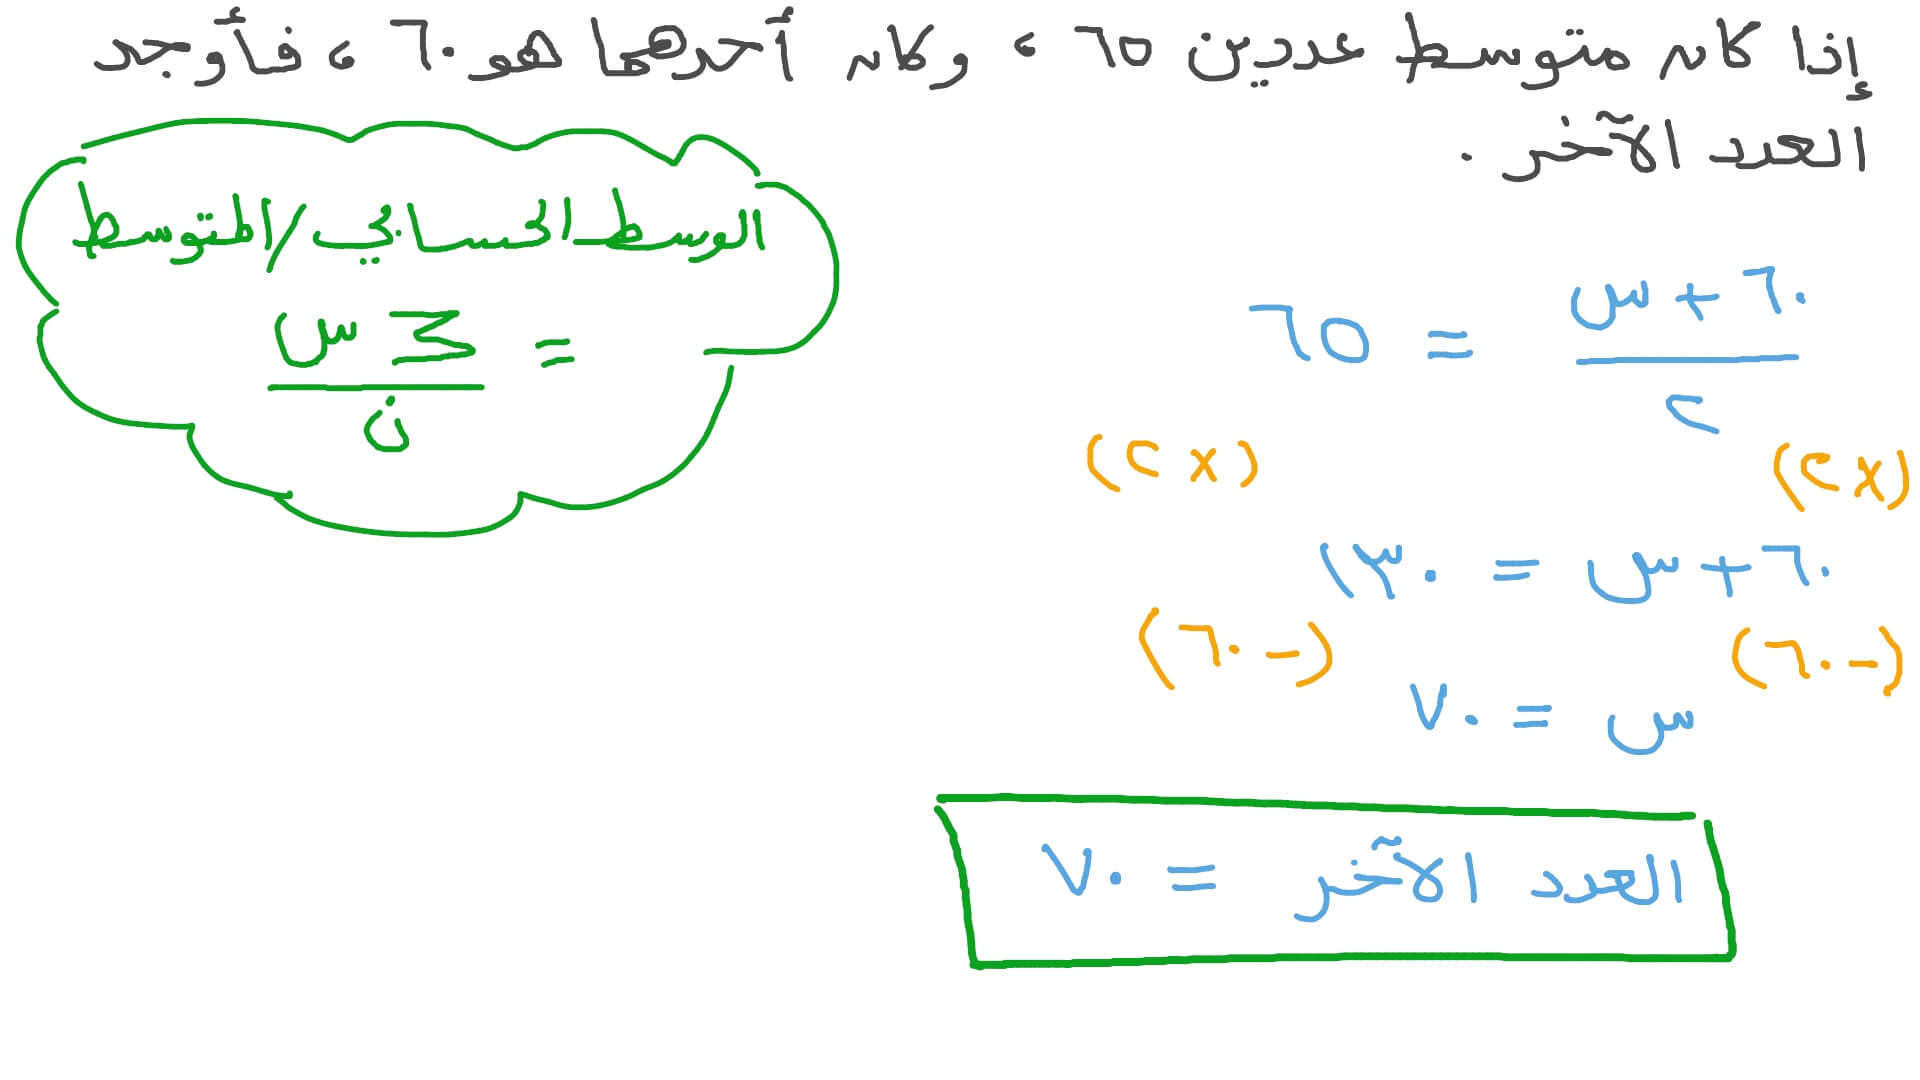 إذا كان متوسط عددين ٦٥ ، وكان أحدهما هو ٦٠ ، فأوجد
العدد الآخر .
الوسط الحسابي/المتوسط
= ∑ س / ن
٦٠ + س / ٢ = ٦٥
(×٢) (×٢)
٦٠ + س = ١٣٠
(-٦٠) (-٦٠)
س = ٧٠
العدد الآخر = ٧٠